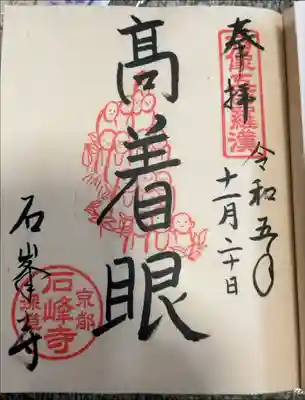 奉拝
羅漢
令和五年
十一月二十日
高着眼
石峯寺
京都
石峰寺